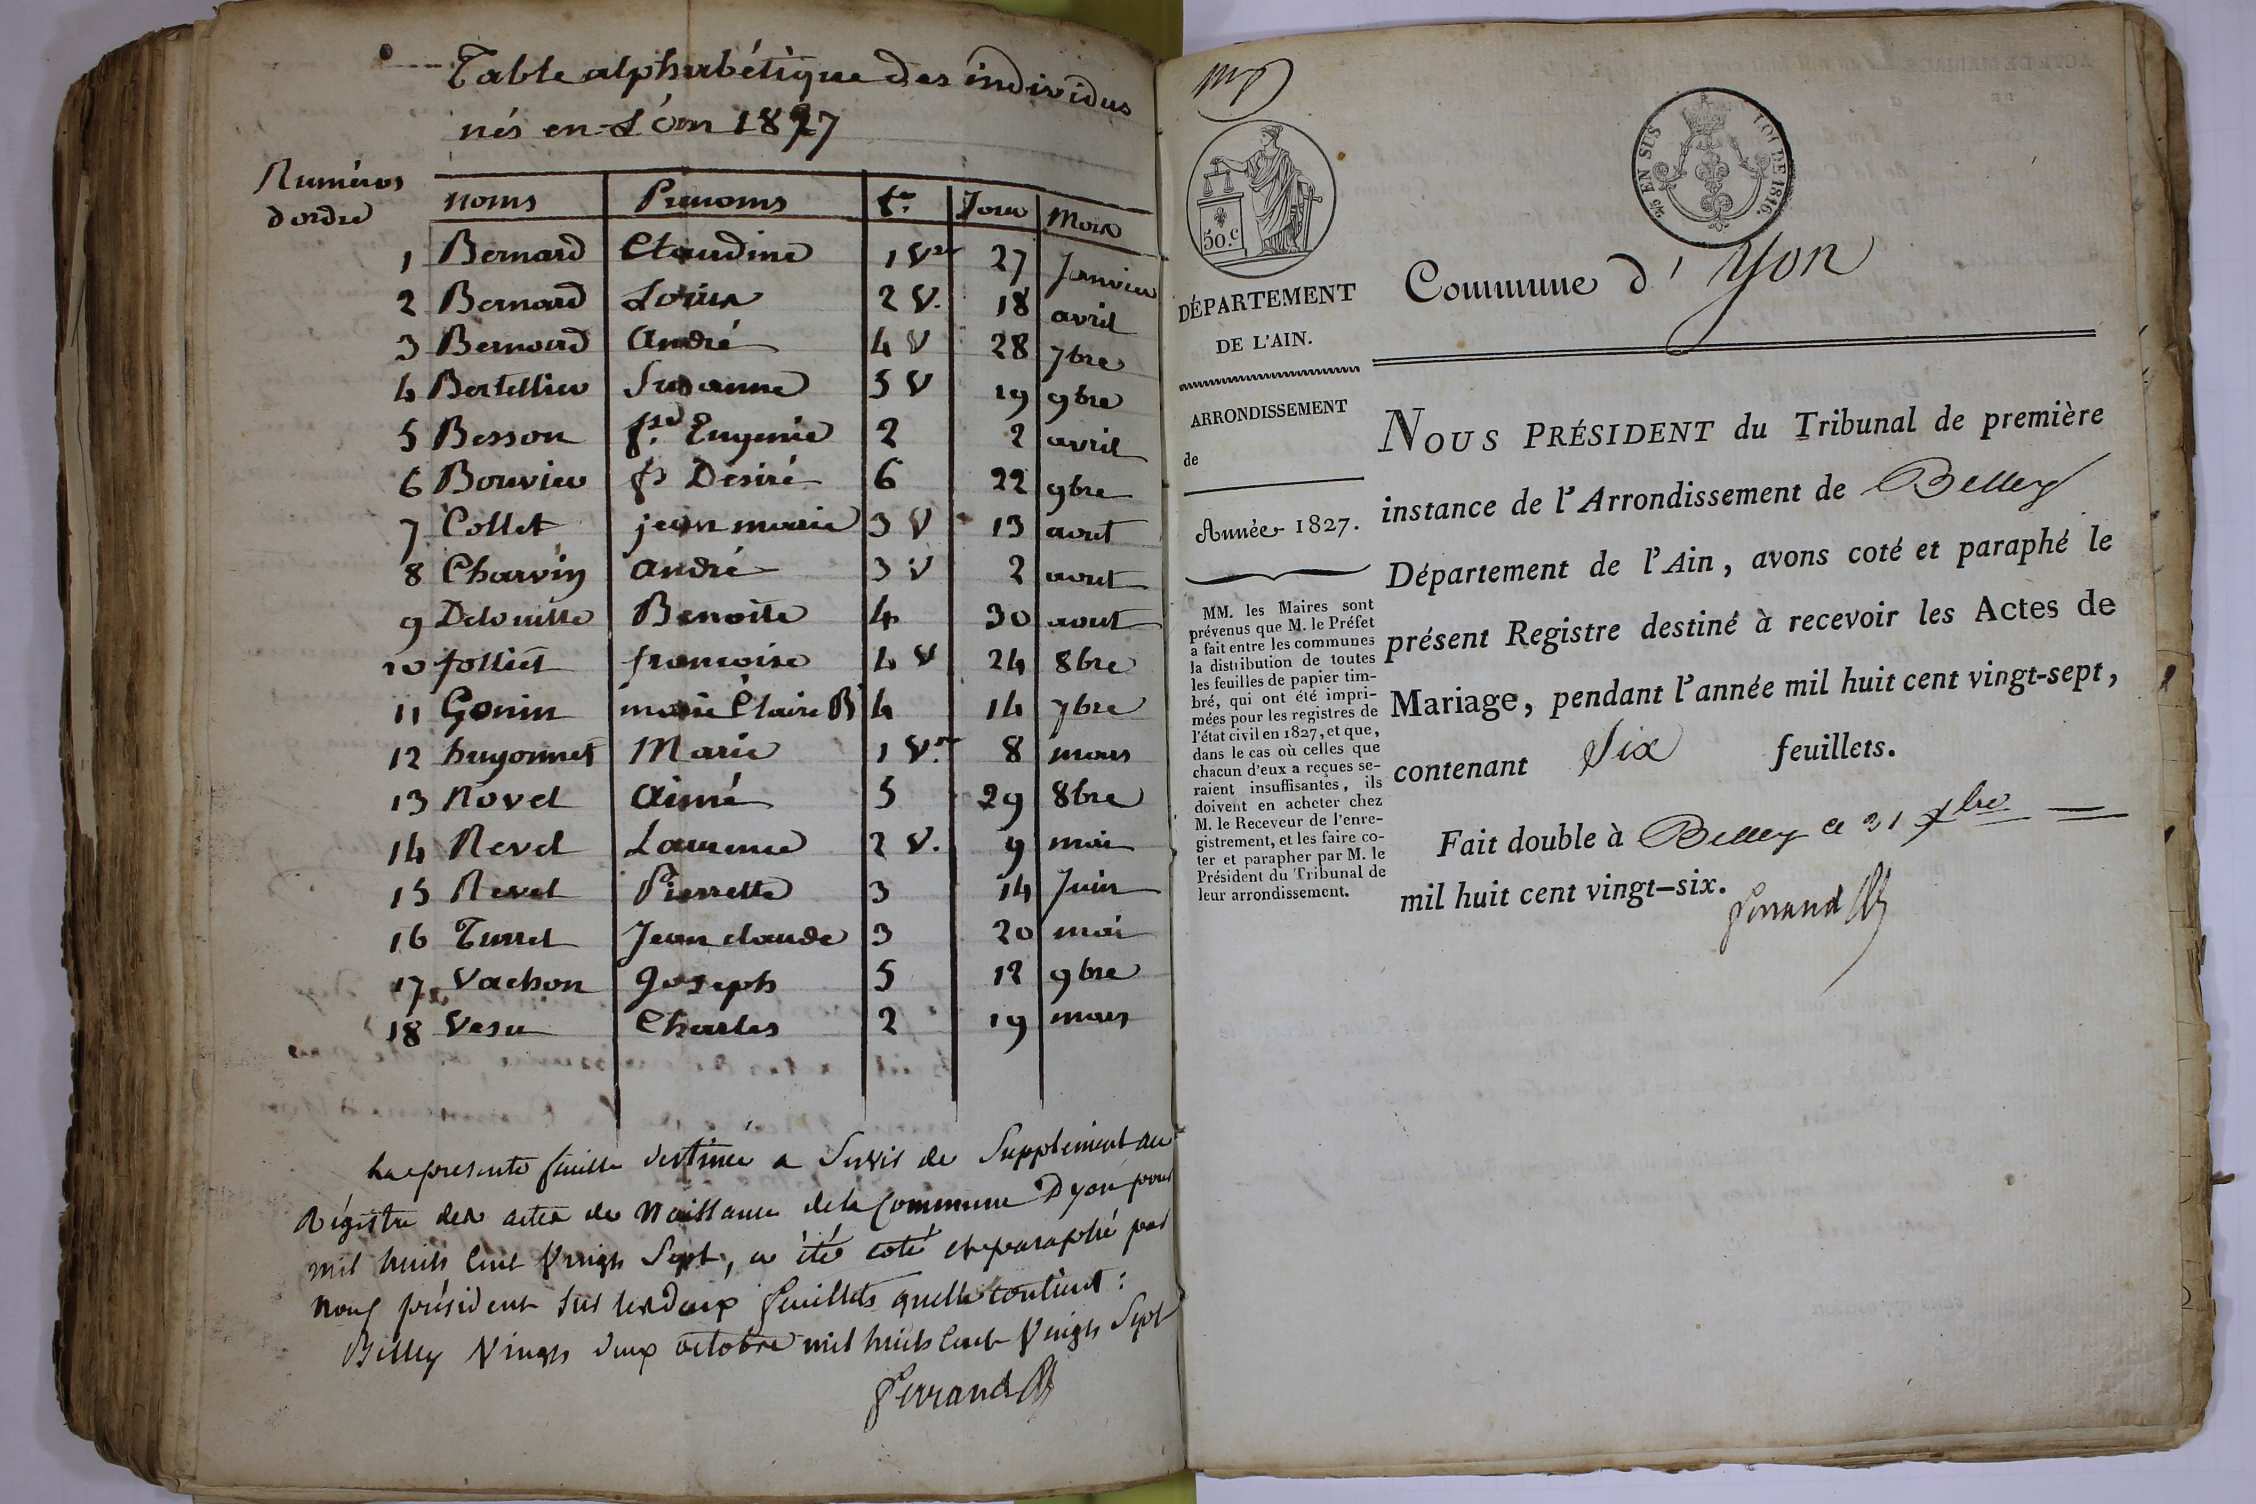 Table alphabétique des individus
nés en L'an 1827
Numéros d'ordre noms Prenoms f.o Jour Mois
1 Bernard Claudine 1 Vo 27 Janvier
2 Bernard Louise 2 V. 18 avril
3 Bernard André 4 V 28 7bre
4 Bertellier Susanne 5 V 19 9bre
5 Besson Eugenie 2 2 avril
6 Bouvier fs Désiré 6 22 9bre
7 Collet jean marie 3 V 13 aout
8 Charvin André 3 V 2 aout
9 Delouille Benoite 4 30 aout
10 Jolliet francoise 4 V 24 8bre
11 Gonin marie Claire B 4 14 7bre
12 hugonnet Marie 1 Vo 8 mars
13 Rovel Aimé 5 29 8bre
14 Revel Laurence 2 V. 9 mai
15 Revel Pierrette 3 14 Juin
16 Turrel Jean claude 3 20 mai
17 Vachon Joseph 5 12 9bre
18 Vesu Charles 2 19 mars
La presente feuille destinée a Servir de Supplement au
Régistre des actes de Naissance de la Commune Dyon pour
mil huit Cent Vingt Sept, a été coté et paraphé par
nous président sur les deux feuillets quelle contient :
Belley Vingt deux octobre mil huit Cent Vingt Sept
Ferrand
50.C
DÉPARTEMENT
DE L'AIN.
ARRONDISSEMENT
de
Année 1827.
MM. les Maires sont
prévenus que M. le Préfet
a fait entre les communes
la distribution de toutes
les feuilles de papier tim-
bré, qui ont été impri-
mées pour les registres de
l'état civil en 1827, et que,
dans le cas où celles que
chacun d'eux a reçues se-
raient insuffisantes, ils
doivent en acheter chez
M. le Receveur de l'enre-
gistrement, et les faire co-
ter et parapher par M. le
Président du Tribunal de
leur arrondissement.
EN SUS LOI DE 1816.
Commune d' Yon
NOUS PRÉSIDENT du Tribunal de première
instance de l'Arrondissement de Belley
Département de l'Ain, avons coté et paraphé le
présent Registre destiné à recevoir les Actes de
Mariage, pendant l'année mil huit cent vingt-sept,
contenant Six feuillets.
Fait double à Belley ce 31 Xbre
mil huit cent vingt-six.
Ferrand